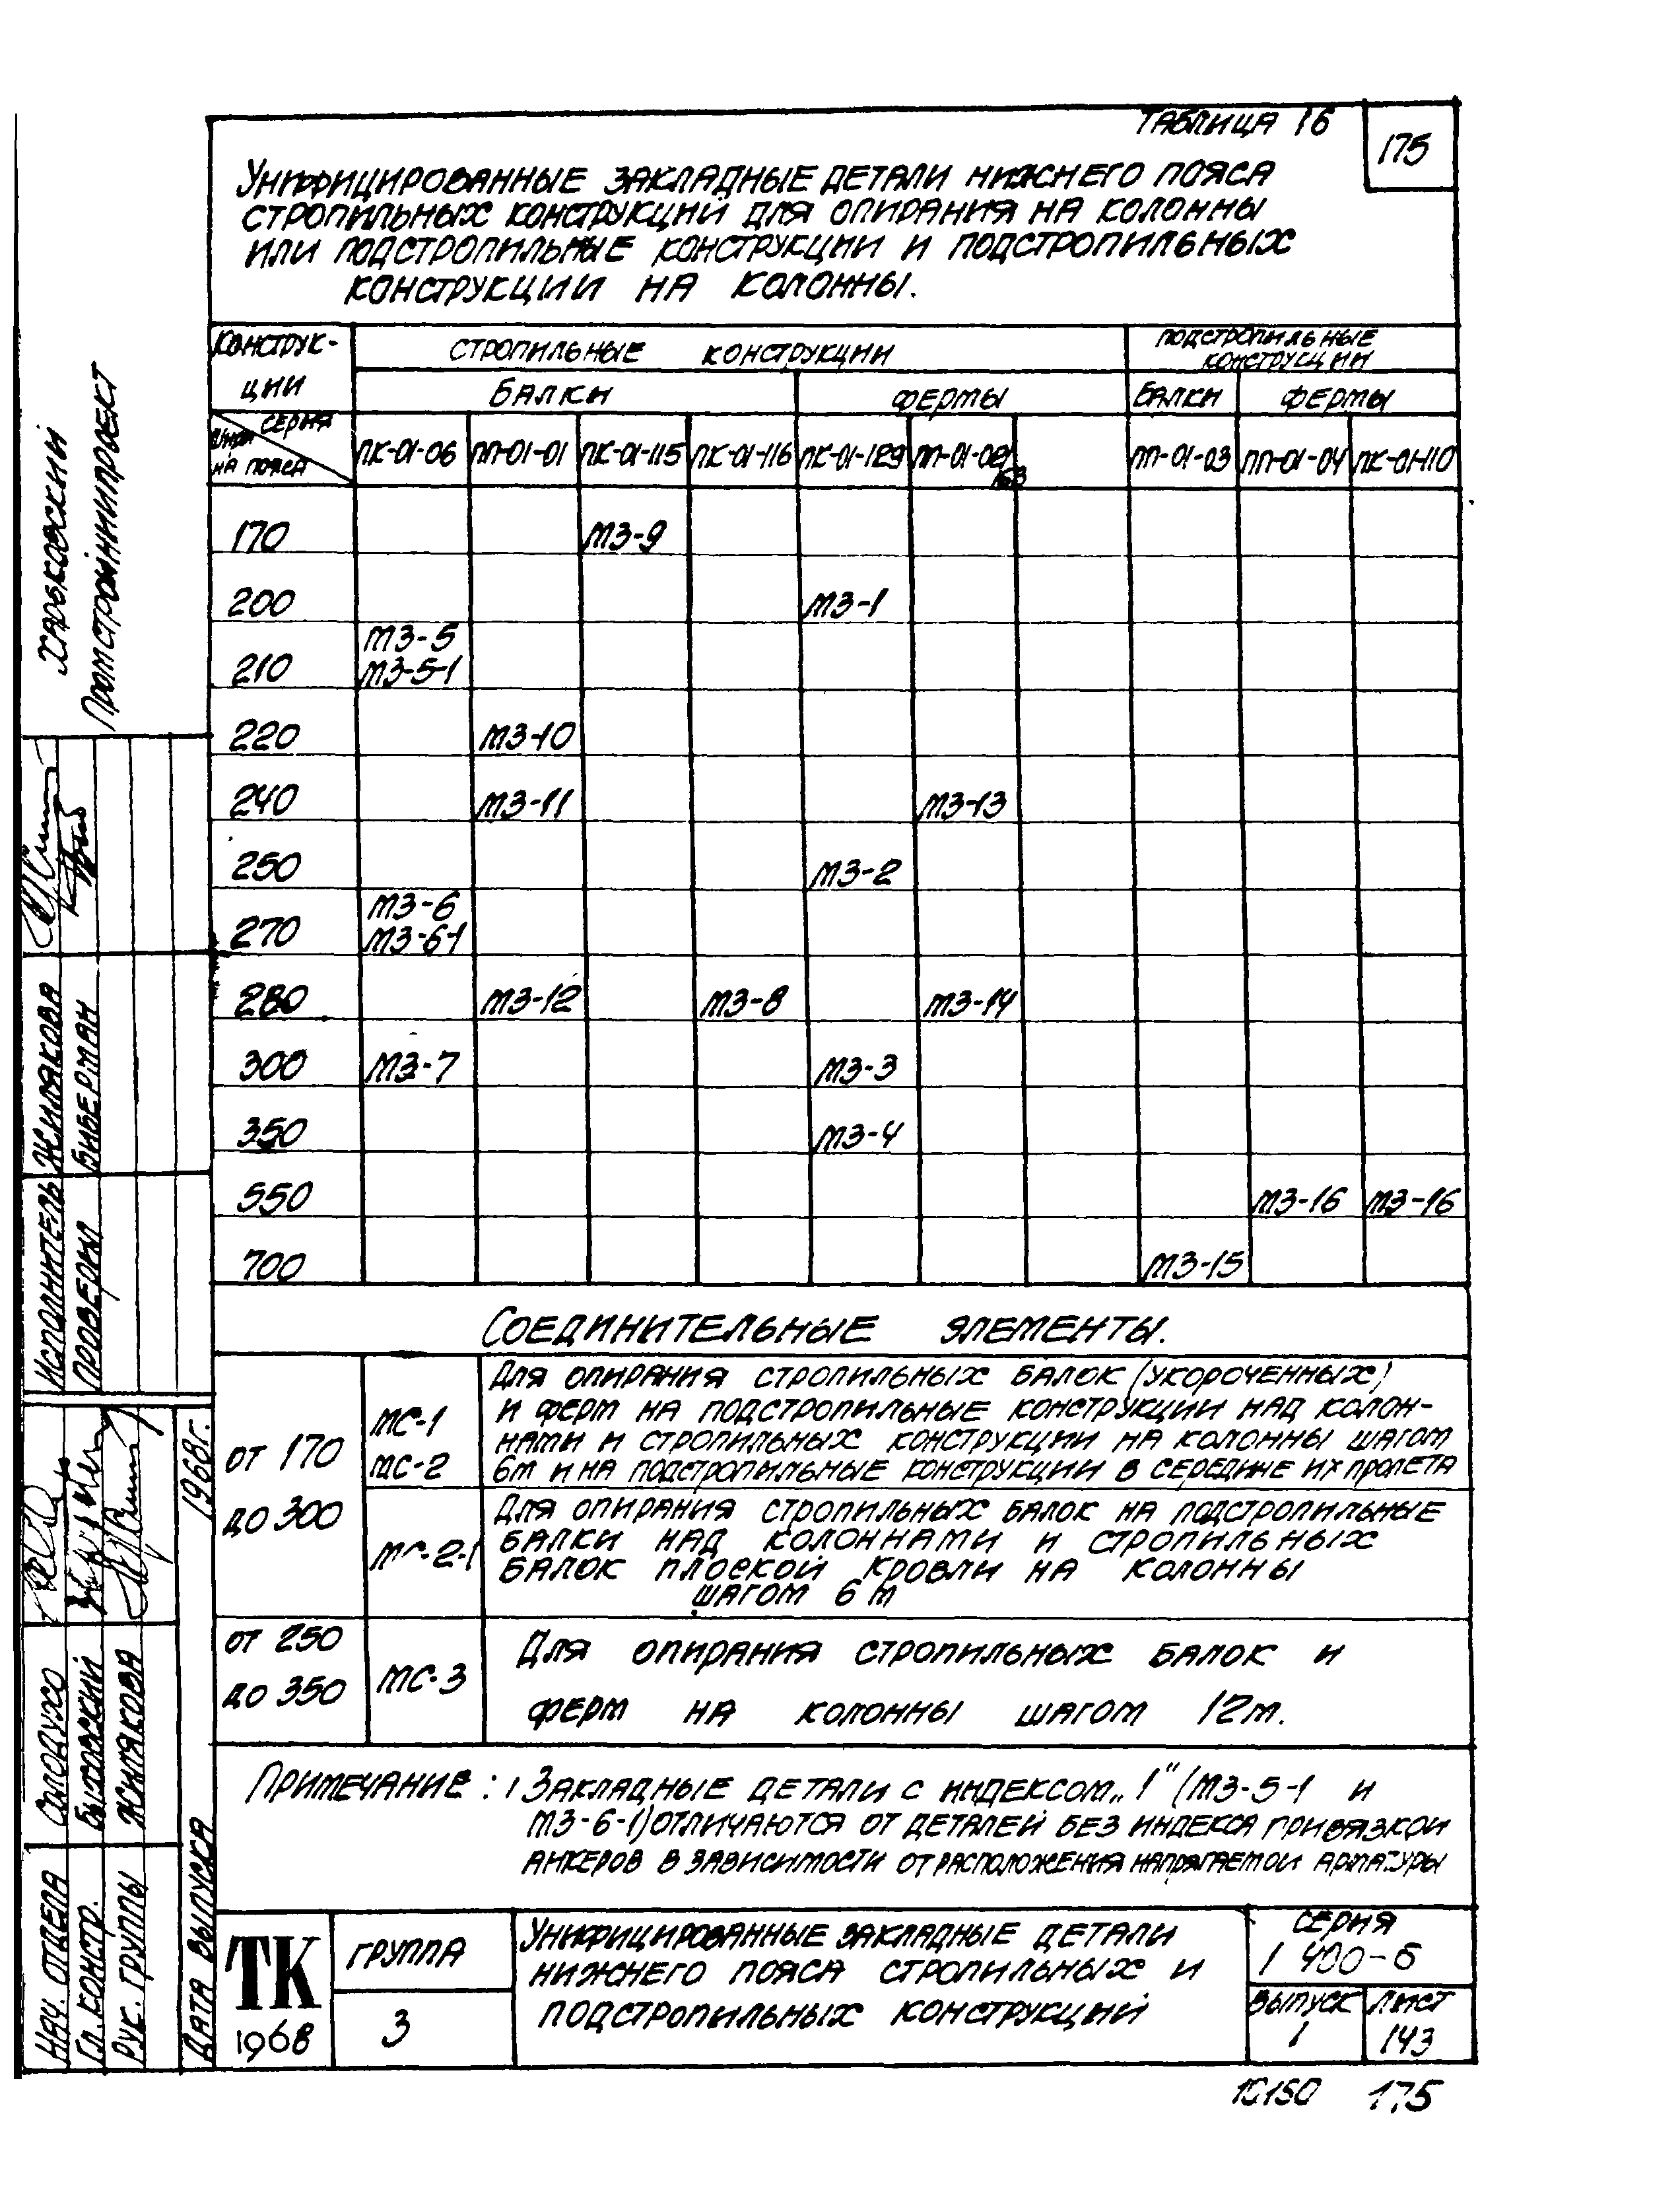 Таблица 16
175
Унифицированные закладные детали нижнего пояса
стропильных конструкций для опирания на колонны
или подстропильные конструкции и подстропильных
конструкции на колонны.
Конструк-
ции
Стропильные конструкции
Подстропильные
конструкции
Балки Фермы Балки Фермы
серия
на пояса
ПК-01-06 ПП-01-01 ПК-01-115 ПК-01-116 ПК-01-129 ПП-01-02/ ПП-01-03 ПП-01-04 ПК-01-110
170 М3-9
200 М3-1
М3-5
210 М3-5-1
220 М3-10
240 М3-11 М3-13
250 М3-2
М3-6
270 М3-6-1
280 М3-12 М3-8 М3-14
300 М3-7 М3-3
350 М3-4
550 М3-16 М3-16
700 М3-15
Соединительные элементы.
от 170
до 300
МС-1
МС-2
Для опирания стропильных балок (укороченных)
и ферм на подстропильные конструкции над колон-
нами и стропильных конструкции на колонны шагом
6м и на подстропильные конструкции в середине их пролета
МС-2-1
Для опирания стропильных балок на подстропильные
балки над колоннами и стропильных
балок плоской кровли на колонны
шагом 6 м
от 250
до 350
МС-3
Для опирания стропильных балок и
ферм на колонны шагом 12м.
Примечание: 1 Закладные детали с индексом „1" (М3-5-1 и
М3-6-1) отличаются от деталей без индекса привязкой
анкеров в зависимости от расположения напрягаемой арматуры
ТК
1968
Группа
3
Унифицированные закладные детали
нижнего пояса стропильных и
подстропильных конструкций
Серия
1 400-6
Выпуск
1
Лист
143
175
Харьковский
Промстройниипроект
Исполнитель Жилякова
Проверил Биберман
Нач. отдела Солодухо
Гл. констр. Бытовский
Рук. группы Жилякова
Дата выпуска 1968г.